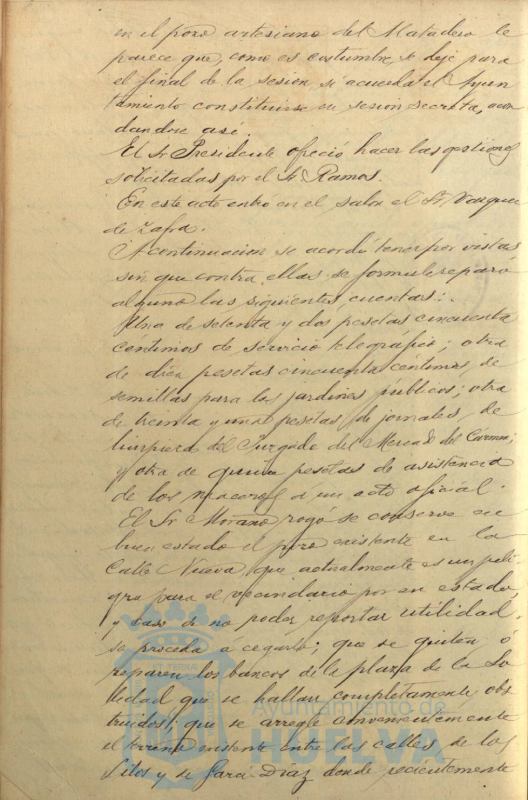 en el pozo artesiano del Matadero le
parece que, como es costumbre se deje para
el final de la sesion, si acuerda el Ayun
tamiento constituirse en sesion secreta, acor
dandose asi.
El Sr Presidente ofreció hacer las gestiones
solicitadas por el Sr Ramos.
En este acto entró en el salon el Sr Vazquez
de Zafra.
A continuacion se acordó tener por vistas
sin que contra ellas se formule reparo
alguno las siguientes cuentas:
Una de setenta y dos pesetas cincuenta
centimos de servicio telegráfico; otra
de diez pesetas cincuenta céntimos, de
semillas para los jardines públicos; otra
de treinta y una pesetas, de jornales, de
limpieza del Juzgado del Mercado del Cármen;
y otra de quince pesetas de asistencia
de los maceros a un acto oficial.
El Sr Morano rogó se conserve en
buen estado el pozo existente en la
Calle Nueva, que actualmente es un peli
gro para el vecindario por su estado,
y caso de no poder reportar utilidad
se proceda á cegarlo; que se quiten ó
reparen los bancos de la plaza de la So
ledad que se hallan completamente obs
truidos; que se arregle convenientemente
el terreno existente entre las calles de los
Silos y de Garci-Díaz donde recientemente
Ayuntamiento de
HUELVA